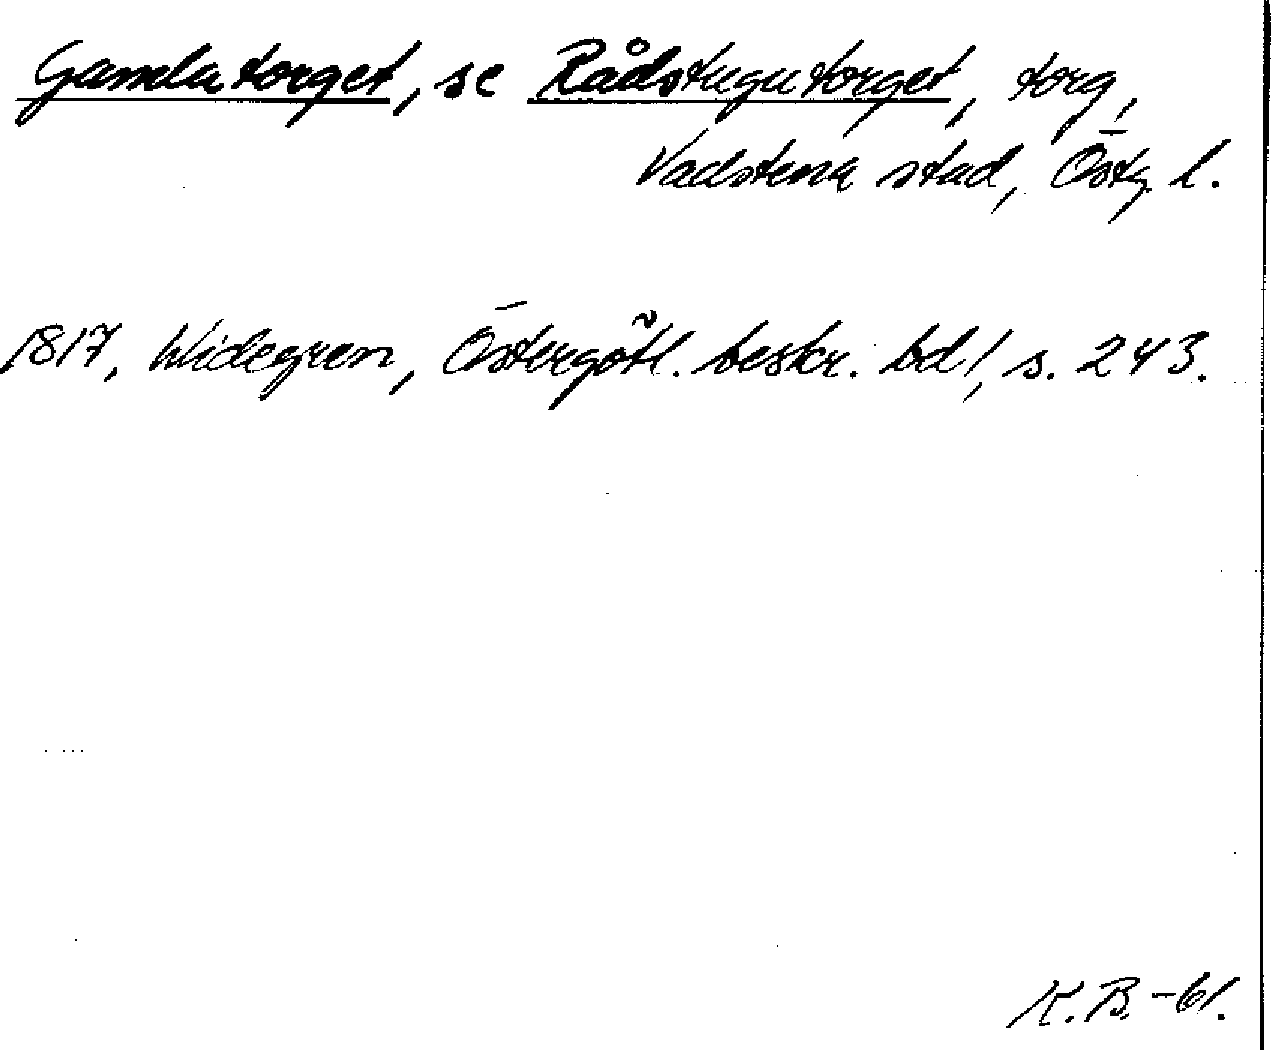 Gamla torget, se Rådstugutorget, torg,
Vadstena stad, Östg. l.
1817, Widegren, Östergötl. beskr. bd 1, s. 243.
K.B. -61.